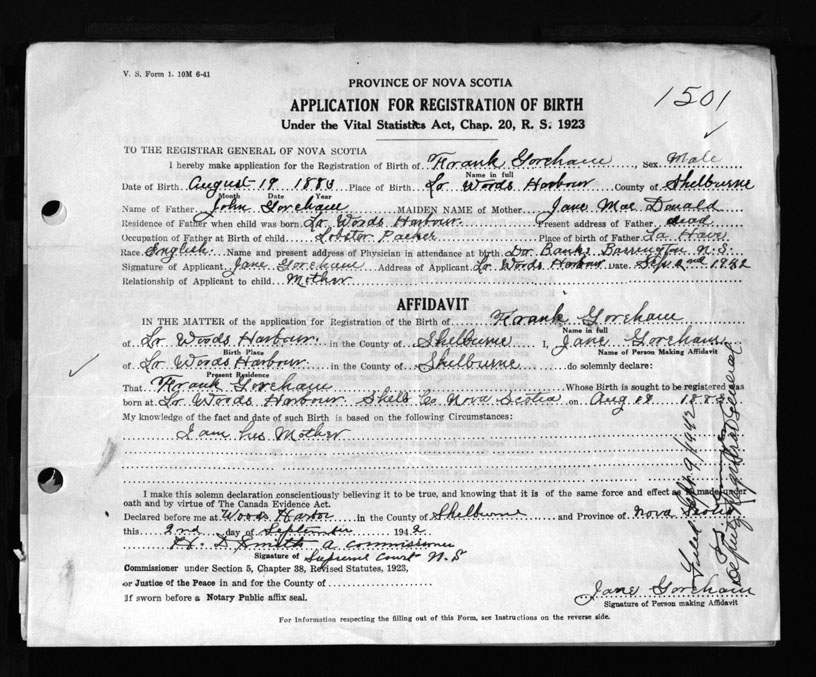 V. S. Form 1. 10M 6-41
PROVINCE OF NOVA SCOTIA
1501
APPLICATION FOR REGISTRATION OF BIRTH
Under the Vital Statistics Act, Chap. 20, R. S. 1923
TO THE REGISTRAR GENERAL OF NOVA SCOTIA
I hereby make application for the Registration of Birth of Frank Goreham, Sex Male
Name in full
Date of Birth August 19 1883 Place of Birth Lr Woods Harbour County of Shelburne
Month Date Year
Name of Father John Goreham MAIDEN NAME of Mother Jane Mac Donald
Residence of Father when child was born Lr Woods Harbour Present address of Father dead
Occupation of Father at Birth of child Lobster Packer Place of birth of Father La Have
Race English Name and present address of Physician in attendance at birth Dr Banks Barrington N.S.
Signature of Applicant Jane Goreham Address of Applicant Lr Woods Harbour Date Sept 2nd 1942
Relationship of Applicant to child Mother
AFFIDAVIT
IN THE MATTER of the application for Registration of the Birth of Frank Goreham
Name in full
of Lr Woods Harbour in the County of Shelburne I, Jane Goreham
Birth Place Name of Person Making Affidavit
of Lr Woods Harbour in the County of Shelburne do solemnly declare:
Present Residence
That Frank Goreham Whose Birth is sought to be registered was
born at Lr Woods Harbour Shelb Co Nova Scotia on Aug 19 1883
My knowledge of the fact and date of such Birth is based on the following Circumstances:
I am his Mother
I make this solemn declaration conscientiously believing it to be true, and knowing that it is of the same force and effect as if made under
oath and by virtue of The Canada Evidence Act.
Declared before me at Woods Harbor in the County of Shelburne and Province of Nova Scotia
this 2nd day of September 1942
D Smith a Commissioner
Signature of Supreme Court N.S
Commissioner under Section 5, Chapter 38, Revised Statutes, 1923,
or Justice of the Peace in and for the County of
If sworn before a Notary Public affix seal.
Jane Goreham
Signature of Person making Affidavit
For Information respecting the filling out of this Form, see Instructions on the reverse side.
Filed Sept 9/1942
Deputy Registrar General